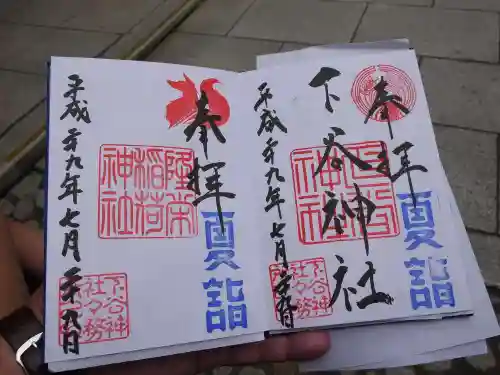 奉拝
夏詣
下谷神社
下谷
神社
平成廿九年七月廿九日
奉拝
夏詣
隆栄
稲荷
神社
平成廿九年七月廿九日
下谷神
社々務